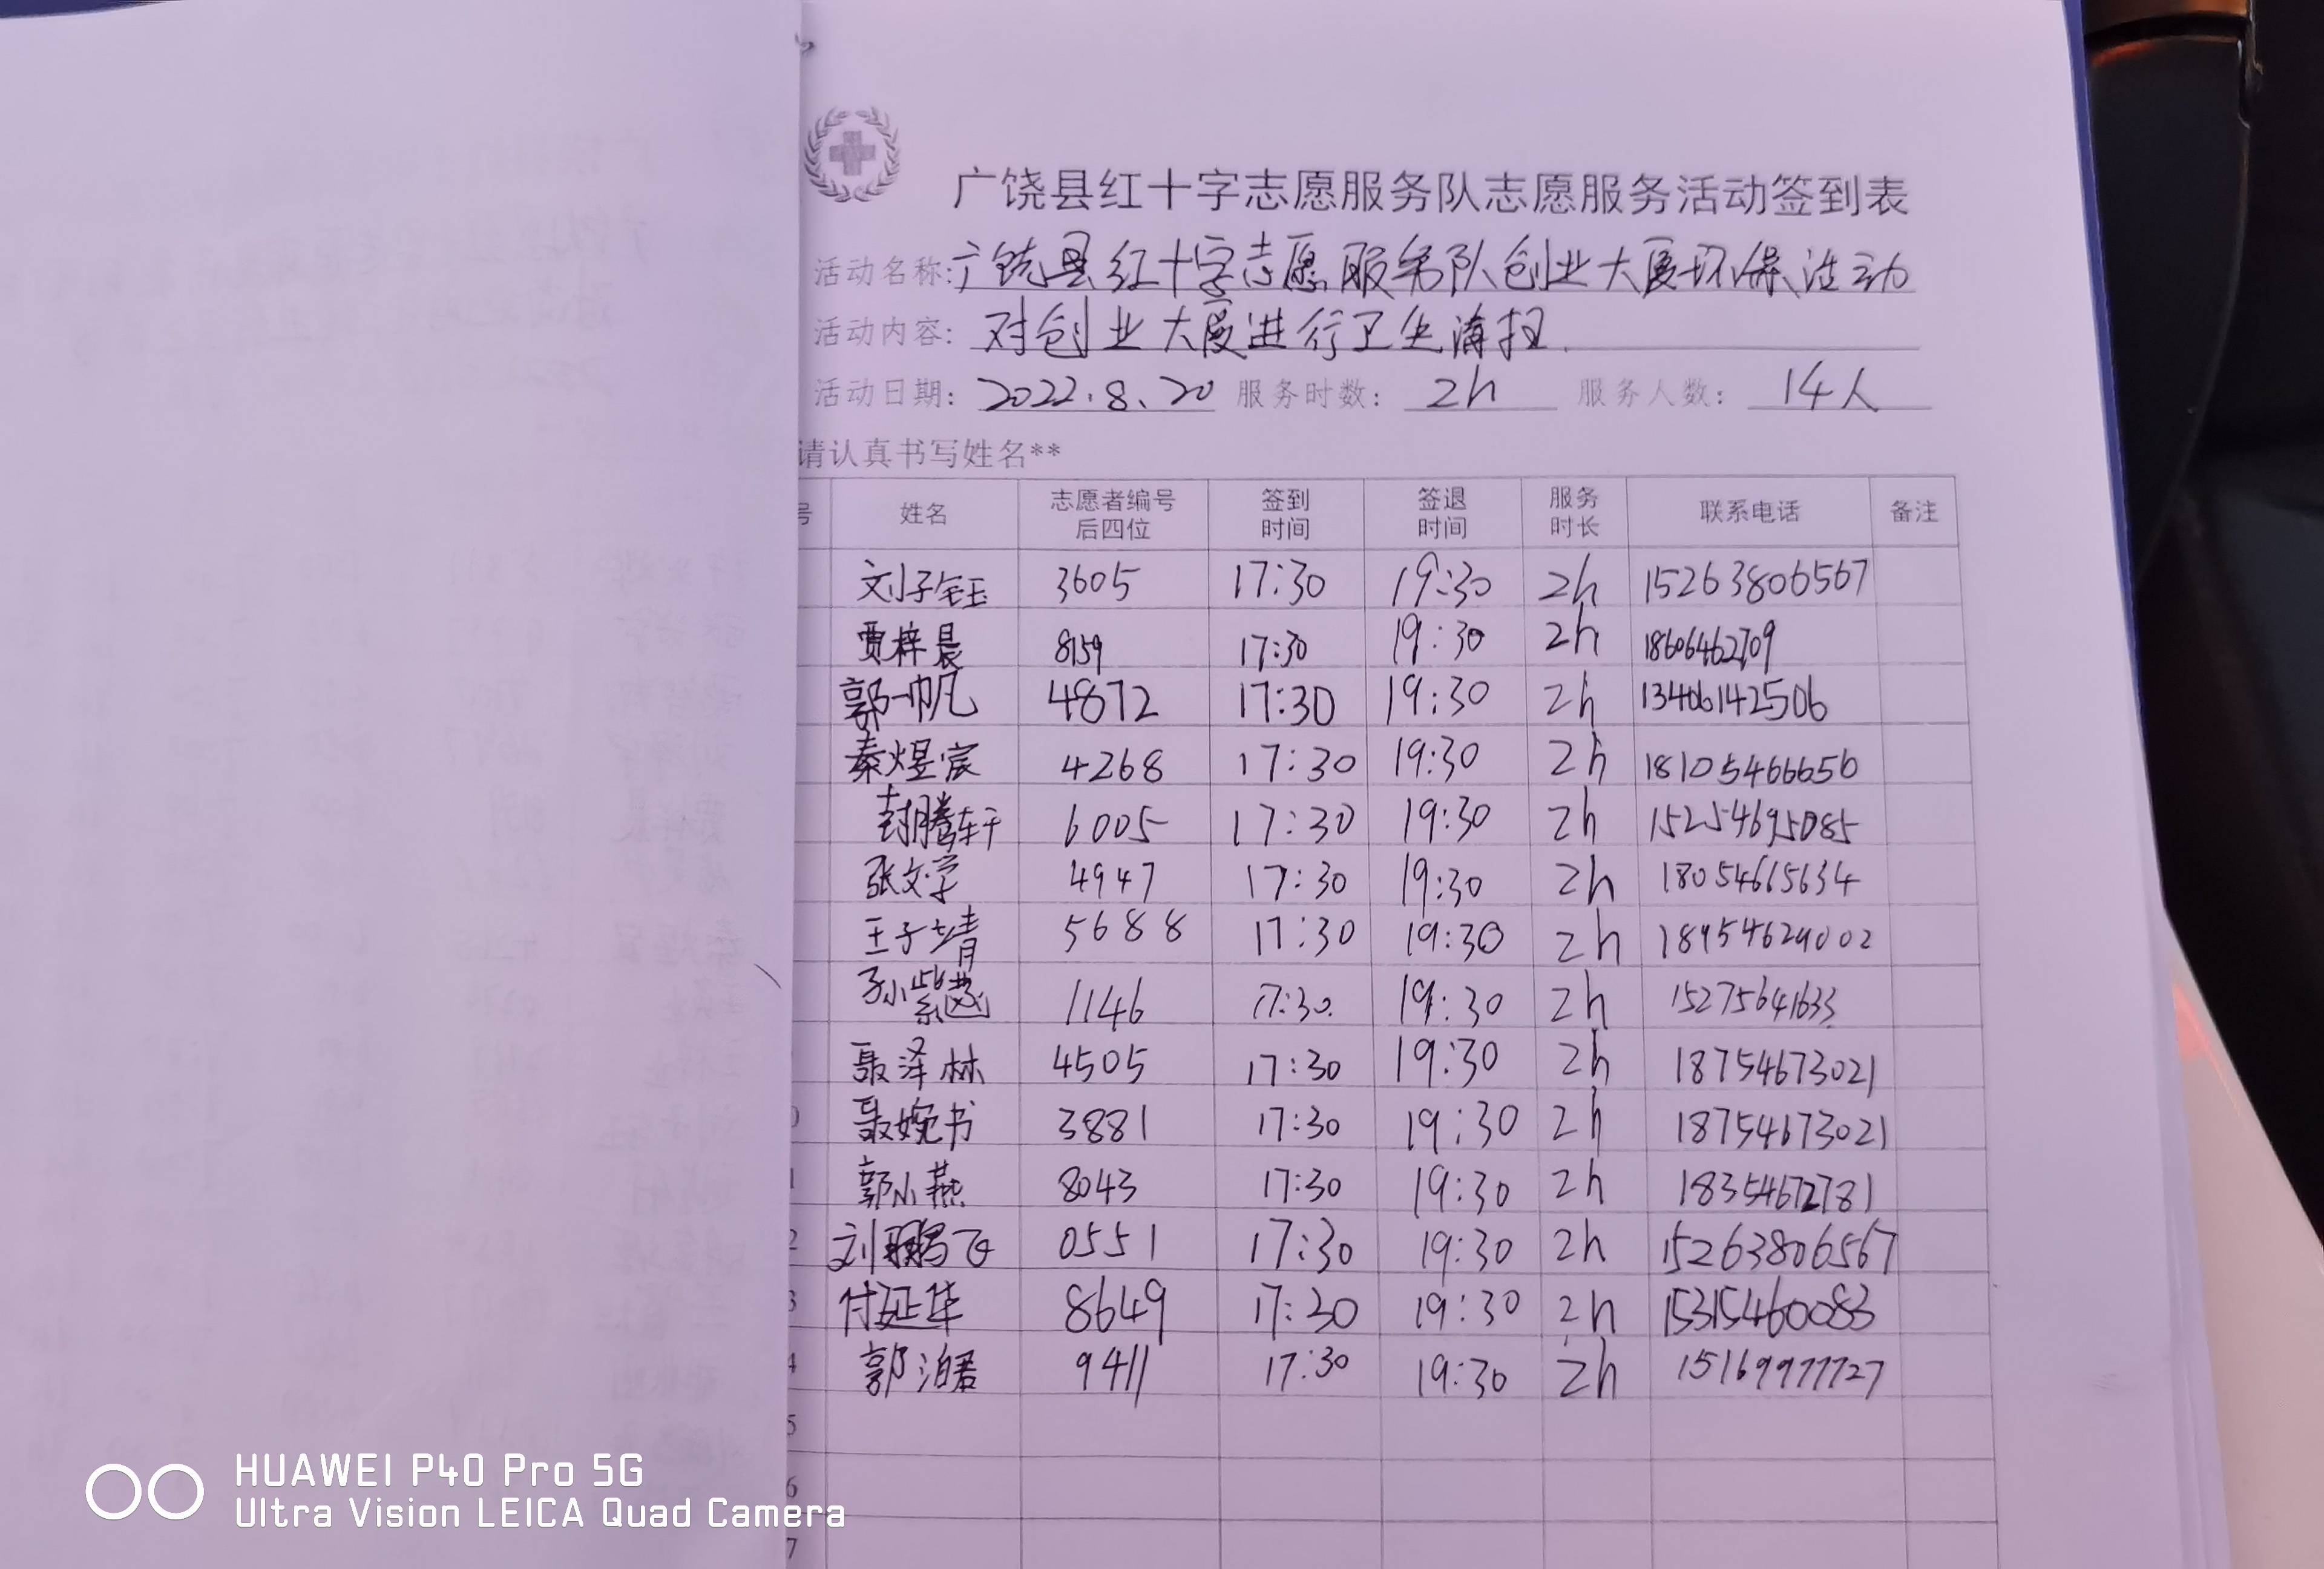 广饶县红十字志愿服务队志愿服务活动签到表
活动名称:广饶县红十字志愿服务队创业大厦环保活动
活动内容: 对创业大厦进行卫生清扫.
活动日期: 2022.8.20 服务时数: 2h 服务人数: 14人
请认真书写姓名**
号 姓名 志愿者编号后四位 签到时间 签退时间 服务时长 联系电话 备注
刘子钰 3605 17:30 19:30 2h 15263806567
贾梓晨 8159 17:30 19:30 2h 18606462709
郭一帆 4872 17:30 19:30 2h 13406142506
秦煜宸 4268 17:30 19:30 2h 18105466656
封腾轩 6005 17:30 19:30 2h 15254695085
张文学 4947 17:30 19:30 2h 18054615634
王子靖 5688 17:30 19:30 2h 18954629002
孙紫 1146 17:30 19:30 2h 15275641633
聂泽林 4505 17:30 19:30 2h 18754673021
0 聂婉书 3881 17:30 19:30 2h 18754673021
1 郭小燕 8043 17:30 19:30 2h 18354672781
2 刘鹏飞 0551 17:30 19:30 2h 15263806567
3 付延华 8649 17:30 19:30 2h 15315460083
4 郭洺君 9411 17:30 19:30 2h 15169977727
5
6
7
HUAWEI P40 Pro 5G
Ultra Vision LEICA Quad Camera